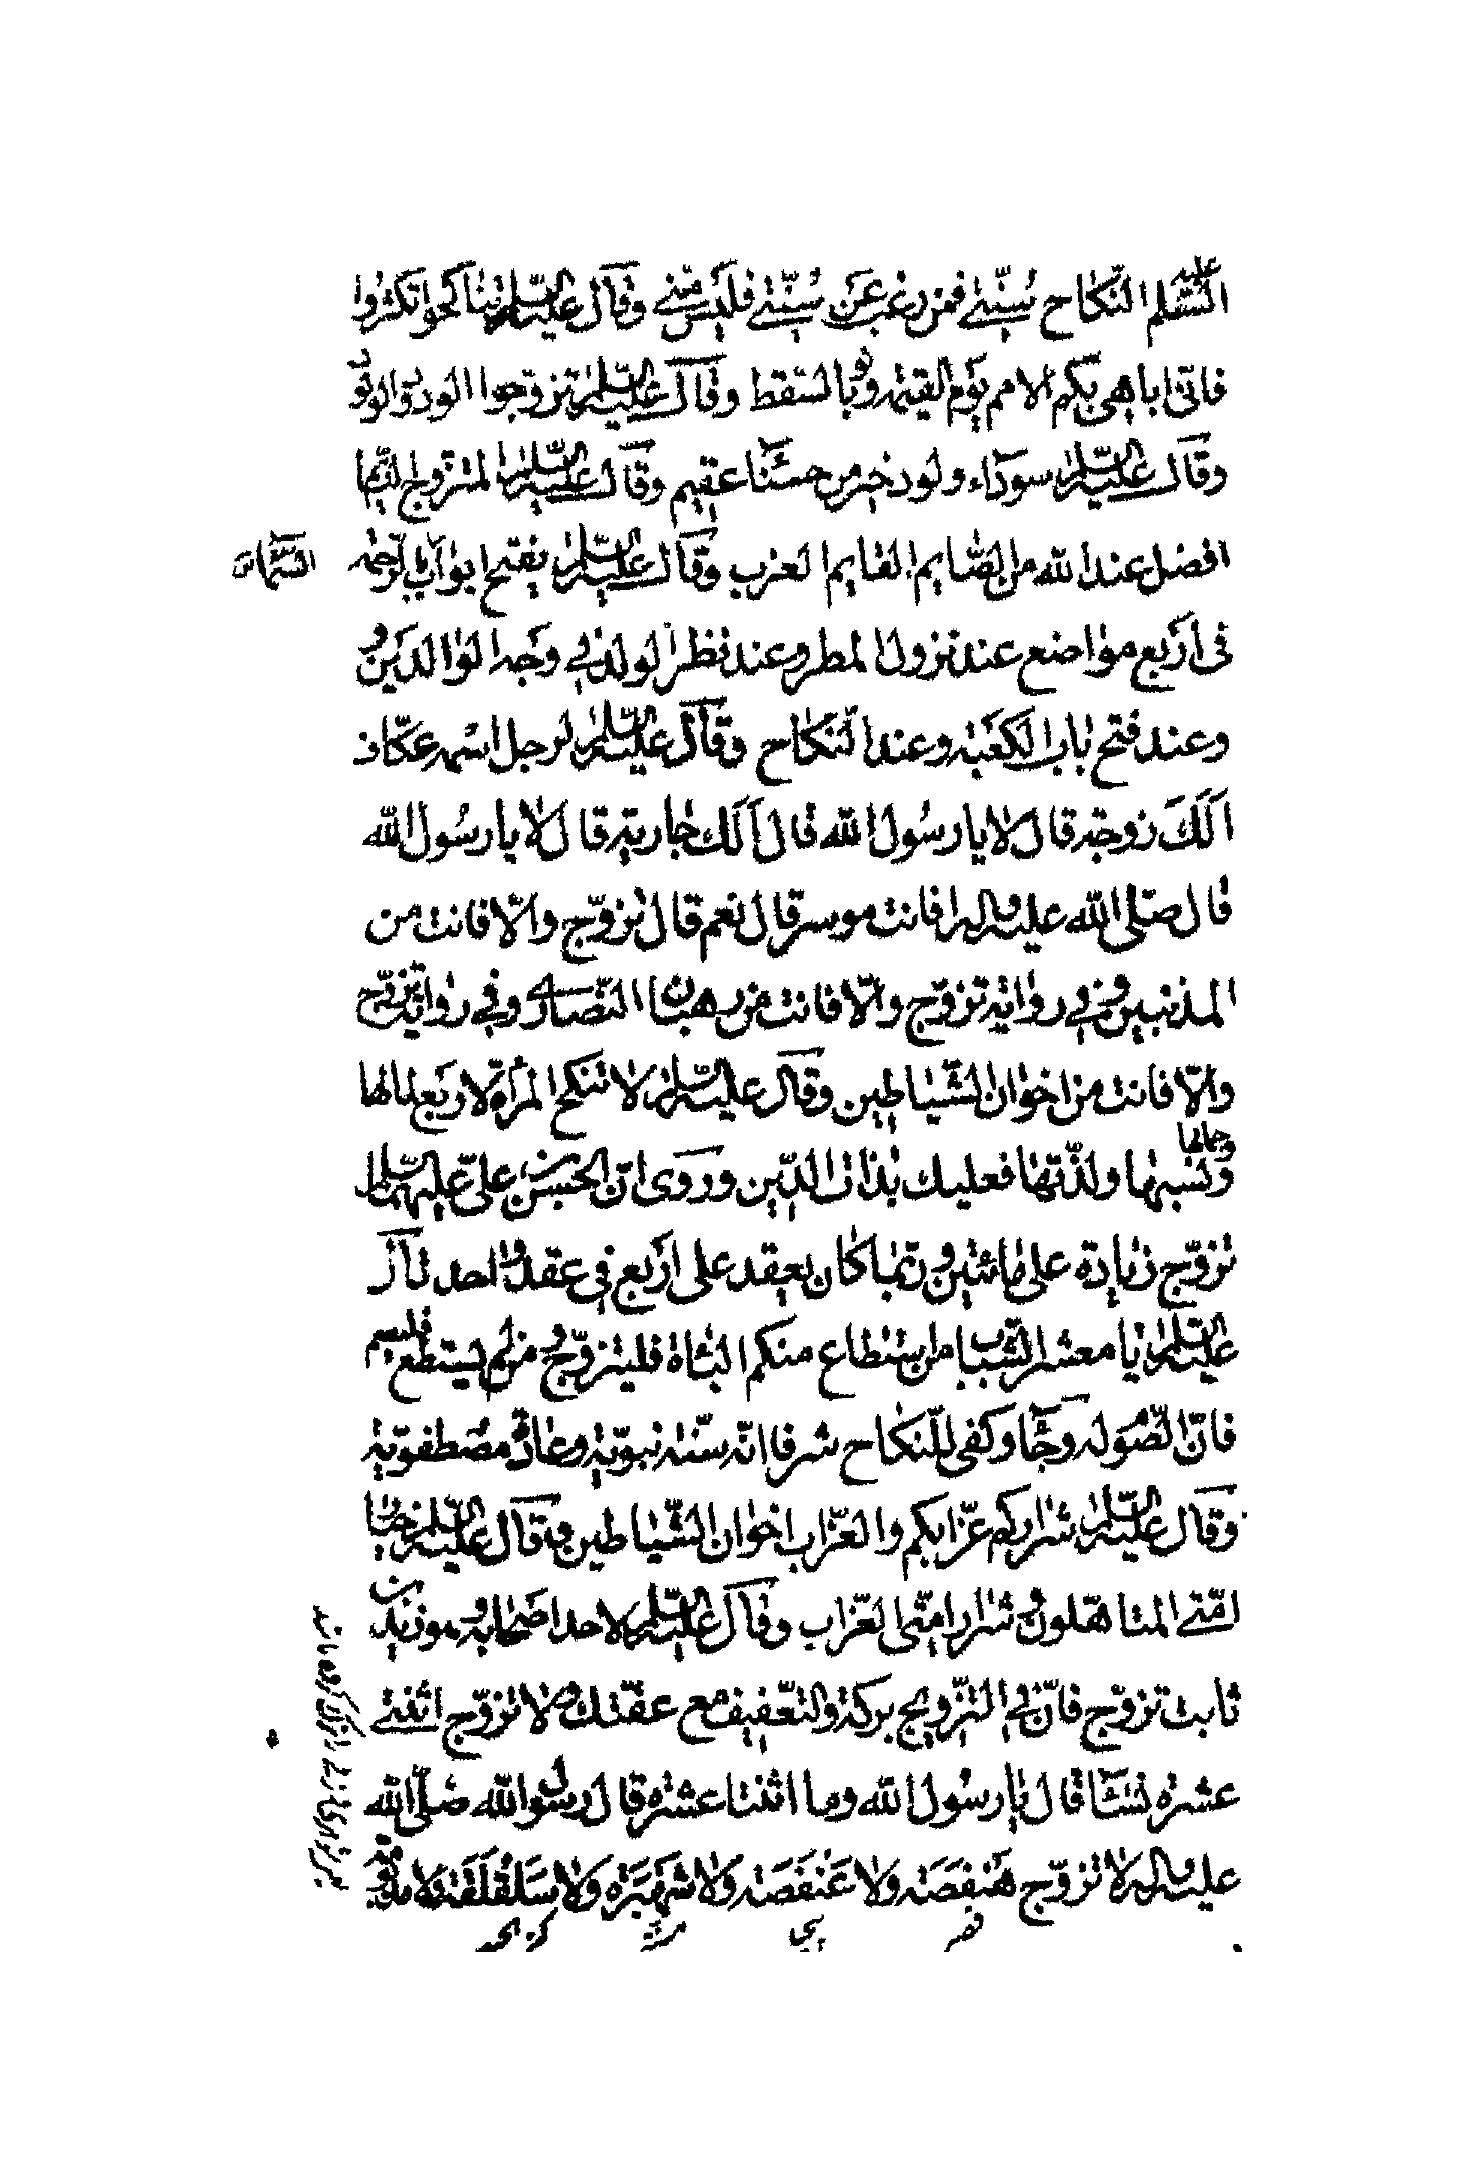 عليه السّلم النّكاح سنّتي فمن رغب عن سنّتي فليس منّي وقال عليه السّلم تناكحوا تكثروا
فانّى اباهى بكم الامم يوم القيمه ولو بالسّقط وقال عليه السّلم تزوّجوا الودود الولود
وقال عليه السّلم سوداء ولود خير من حسناء عقيم وقال عليه السّلم المتزوّج النّايم
افضل عند الله من الصّايم القايم العزب وقال عليه السّلم يفتح ابواب الرّحمه السّماء
فى اربع مواضع عند نزول المطر وعند نظر الولد في وجه الوالدين
وعند فتح باب الكعبه وعند النّكاح وقال عليه السّلم لرجل اسمه عكّاف
الك زوجة قال لا يا رسول الله قال الك جارية قال لا يا رسول الله
قال صلّى الله عليه واله افانت موسر قال نعم قال تزوّج والّا فانت من
المذنبين وفي رواية تزوّج والّا فانت من رهبان النّصارى وفي رواية تزوّج
والّا فانت من اخوان الشّياطين وقال عليه السّلم لا تنكح المرأة لاربع لمالها
وجمالها ونسبها ولذّتها فعليك بذات الدّين وروى انّ الحسن بن علىّ عليهما السّلم
تزوّج زيادة على مائتين وربّما كان يعقد على اربع في عقد واحد قال
عليه السّلم يا معشر الشّباب من استطاع منكم الباة فليتزوّج ومن لم يستطع فليصم
فانّ الصّوم له وجاء وكفى للنّكاح شرفا انّه سنّة نبويّة وعادة مصطفويّة
وقال عليه السّلم شراركم عزّابكم والعزّاب اخوان الشّياطين وقال عليه السّلم خيار
امّتي المتاهّلون وشرار امّتى العزّاب وقال عليه السّلم لاحد اصحابه وهو زيد بن
ثابت تزوّج فانّ في التّزويج بركة والتعفّف مع عفّتك ولا تزوّج اثنتي
عشرة نساء قال يا رسول الله وما اثنتا عشره قال رسول الله صلّى الله
عليه واله لا تزوّج هنفصة ولا عنفصة ولا شهبرة ولا سلقلقة ولا